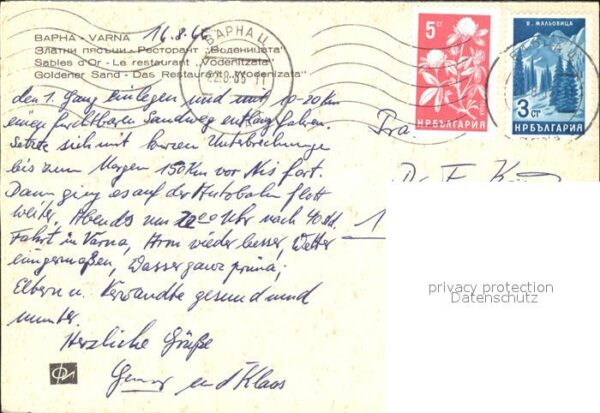 ВАРНА - VARNA 16.8.66
Златни пясъци - Ресторант „Воденицата"
Sables d'Or - Le restaurant „Vodenitzata"
Goldener Sand - Das Restaurant „Wodenizata"
ВАРНА Ц
5 СТ
НР БЪЛГАРИЯ
В. МАЛЬОВИЦА
3 СТ
НР БЪЛГАРИЯ
den 1. Gang einlegen und mit 10-20 Km
einen furchtbaren Sandweg entlang fahren.
Setzte sich mit kurzen Unterbrechungen
bis zum Morgen 150 Km vor Nis fort.
Dann ging es auf der Autobahn flott
weiter. Abends um Uhr nach 40 std.
Fahrt in Varna, Arm wieder besser, Wetter
einigermaßen, Wasser ganz prima;
Eltern u. Verwandte gesund und
munter.
Herzliche Grüße
und Klaos
Fra
Dr. E.
privacy protection
Datenschutz